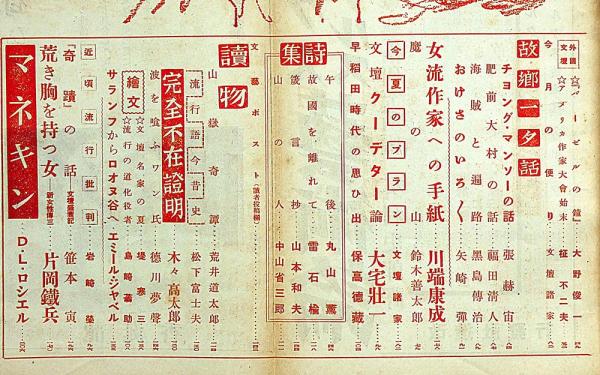 外國文壇 ☆「バーゼルの鐘」 大野俊一
☆アメリカ作家大會始末 征不二夫
今月の便り 文壇諸家
故・郷一夕話
チョング・マンソーの話 張赫宙
肥前大村の話 福田清人
海賊と遍路 黒島傳治
おけさのいろ〱 矢崎彈
魔の山 鈴木善太郎
女流作家への手紙 川端康成
今夏のプラン 文壇諸家
文壇クーデター論 大宅壯一
早稻田時代の思ひ出 保高德藏
詩集
午後 丸山薫
故國を離れて 雷石楡
箴言抄 山本和夫
山の人 中山省三郎
文藝ポスト (讀者投稿欄)
讀物
山嶽奇譚 荒井道太郎
流行語今昔史 松下富士夫
完全不在證明 木々高太郎
波を喰ふワン氏 德川夢聲
繪文
☆文壇名家の夏 堤寒三
☆流行の道化役者 島崎蓊助
サランフからロオヌ谷へ エミール・ジャベル
近頃流行批判 岩崎榮
「奇蹟」の話 文壇盛衰記 笹本寅
荒き胸を持つ女 新女性傳三 片岡鐵兵
マネキン D・L・ロシエル